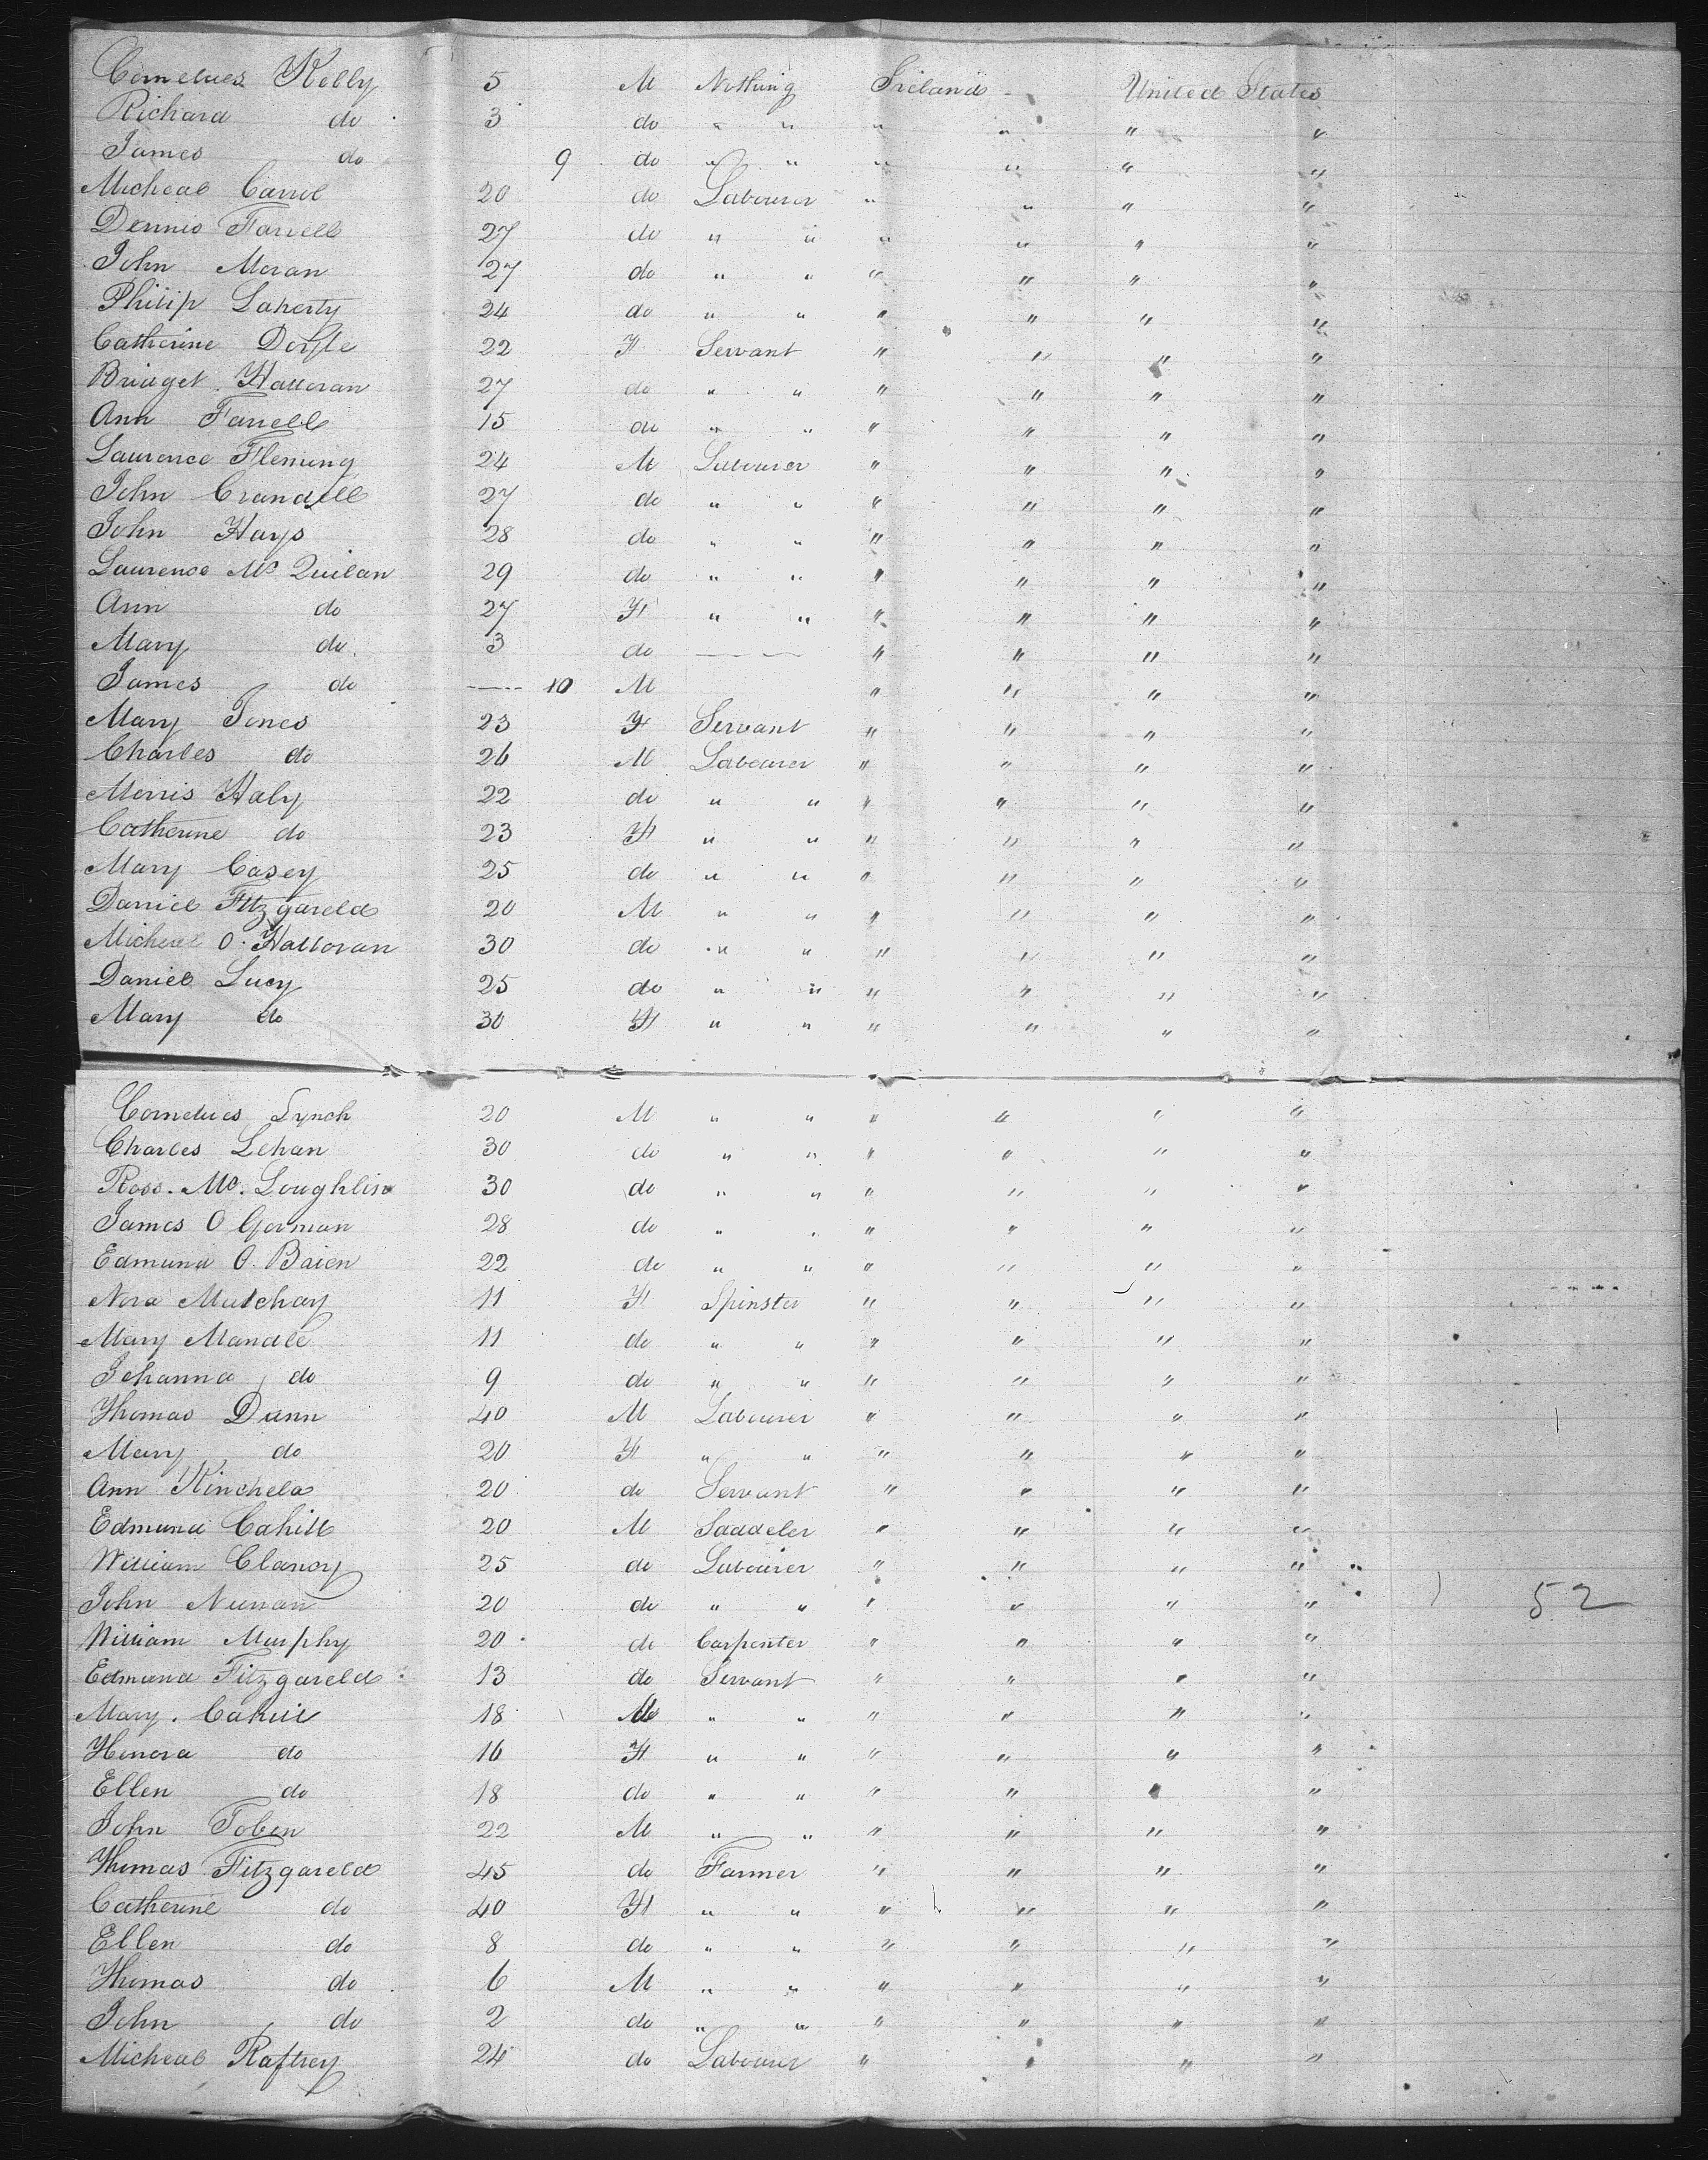 Cornelues Kelly 5 M Nothing Ireland United States
Richard do 3 do " " " " " "
James do 9 do " " " " " "
Micheal Carrol 20 do Labourer " " " "
Dennis Farrell 27 do " " " " " "
John Moran 27 do " " " " " "
Philip Laherty 24 do " " " " " "
Catherine Doyle 22 F Servant " " " "
Bridget Halloran 27 do " " " " " "
Ann Farrell 15 do " " " " " "
Laurence Fleming 24 M Labourer " " " "
John Crandell 27 do " " " " " "
John Hays 28 do " " " " " "
Laurence Mc Quilan 29 do " " " " " "
Ann do 27 F " " " " " "
Mary do 3 do — — " " " "
James do — 10 M " " " "
Mary Jones 23 F Servant " " " "
Charles do 26 M Labourer " " " "
Morris Haly 22 do " " " " " "
Catherine do 23 F " " " " " "
Mary Casey 25 do " " " " " "
Daniel Fitzgareld 20 M " " " " " "
Micheal O. Halloran 30 do " " " " " "
Daniel Lucy 25 do " " " " " "
Mary do 30 F " " " " " "
Cornelues Lynch 20 M " " " " " "
Charles Lehan 30 do " " " " " "
Ross. Mc. Loughlin 30 do " " " " " "
James O Gorman 28 do " " " " " "
Edmund O. Brien 22 do " " " " " "
Nora 11 F Spinster " " " "
Mary Mandle 11 do " " " " " "
Johanna do 9 do " " " " " "
Thomas Dunn 40 M Labourer " " " "
Mary do 20 F " " " " " "
Ann Kinchela 20 do Servant " " " "
Edmund Cahill 20 M Saddeler " " " "
William Clancy 25 do Labourer " " " "
John Nunan 20 do " " " " " " 52
William Murphy 20 do Carpenter " " " "
Edmund Fitzgareld 13 do Servant " " " "
Mary. Cahill 18 " " " " " "
Honora do 16 F " " " " " "
Ellen do 18 do " " " " " "
John Tobin 22 M " " " " " "
Thomas Fitzgareld 45 do Farmer " " " "
Catherine do 40 F " " " " " "
Ellen do 8 do " " " " " "
Thomas do 6 M " " " " " "
John do 2 do " " " " " "
Micheal Raftrey 24 do Labourer " " " "